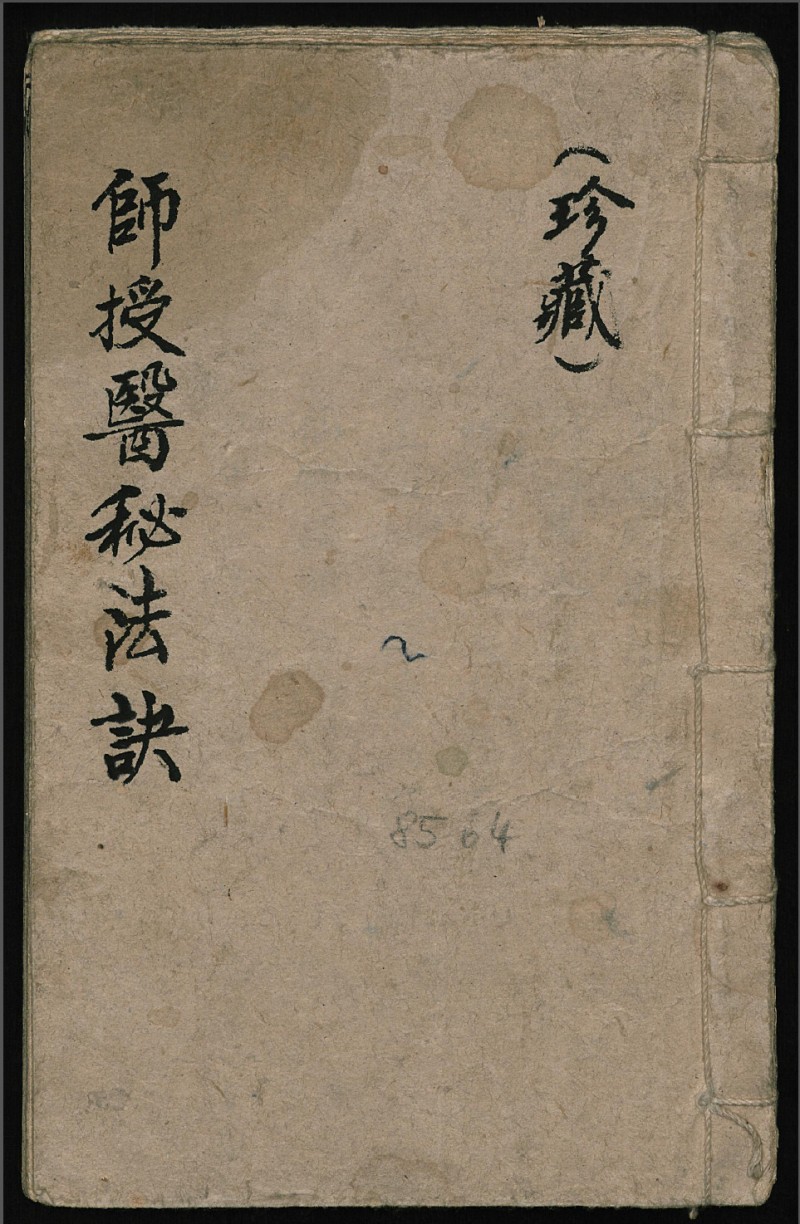 （珍藏）
師授醫秘法訣
8564